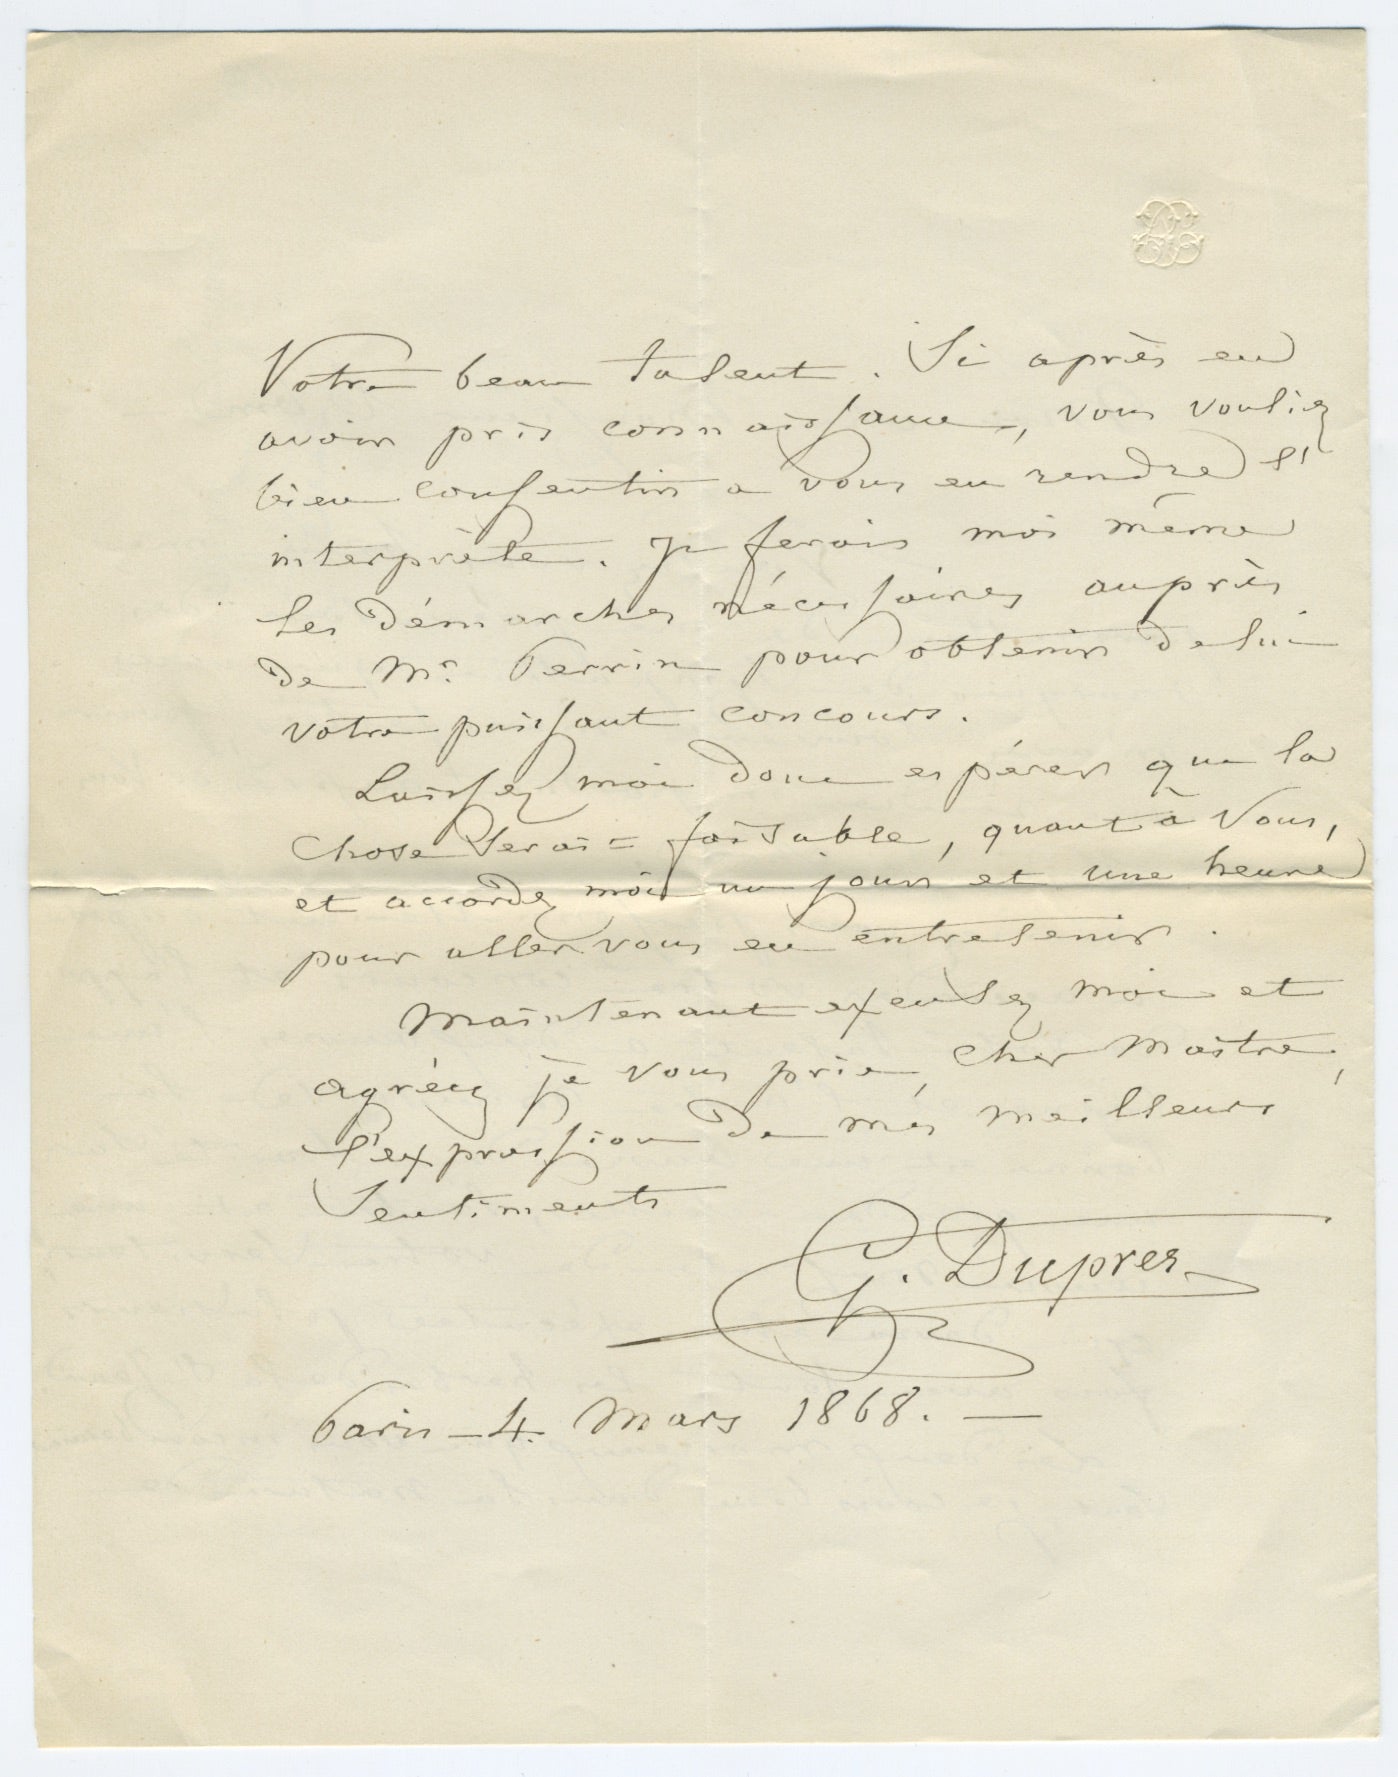 Votre beau talent. Si après en
avoir pris connaissance, vous vouliez
bien consentir a vous en rendre l'
interprète. Je ferais moi même
les démarches nécessaires auprès
de Mr. Perrin pour obtenir de lui
votre puissant concours.
Laissez moi donc espérer que la
chose serai= faisable, quant à vous,
et accordez moi un jour et une heure
pour aller vous en entretenir.
Maintenant excusez moi et
agréez je vous prie, cher Maître,
l'expression de mes meilleurs
sentiments
G. Duprez
Paris - 4. Mars 1868. —